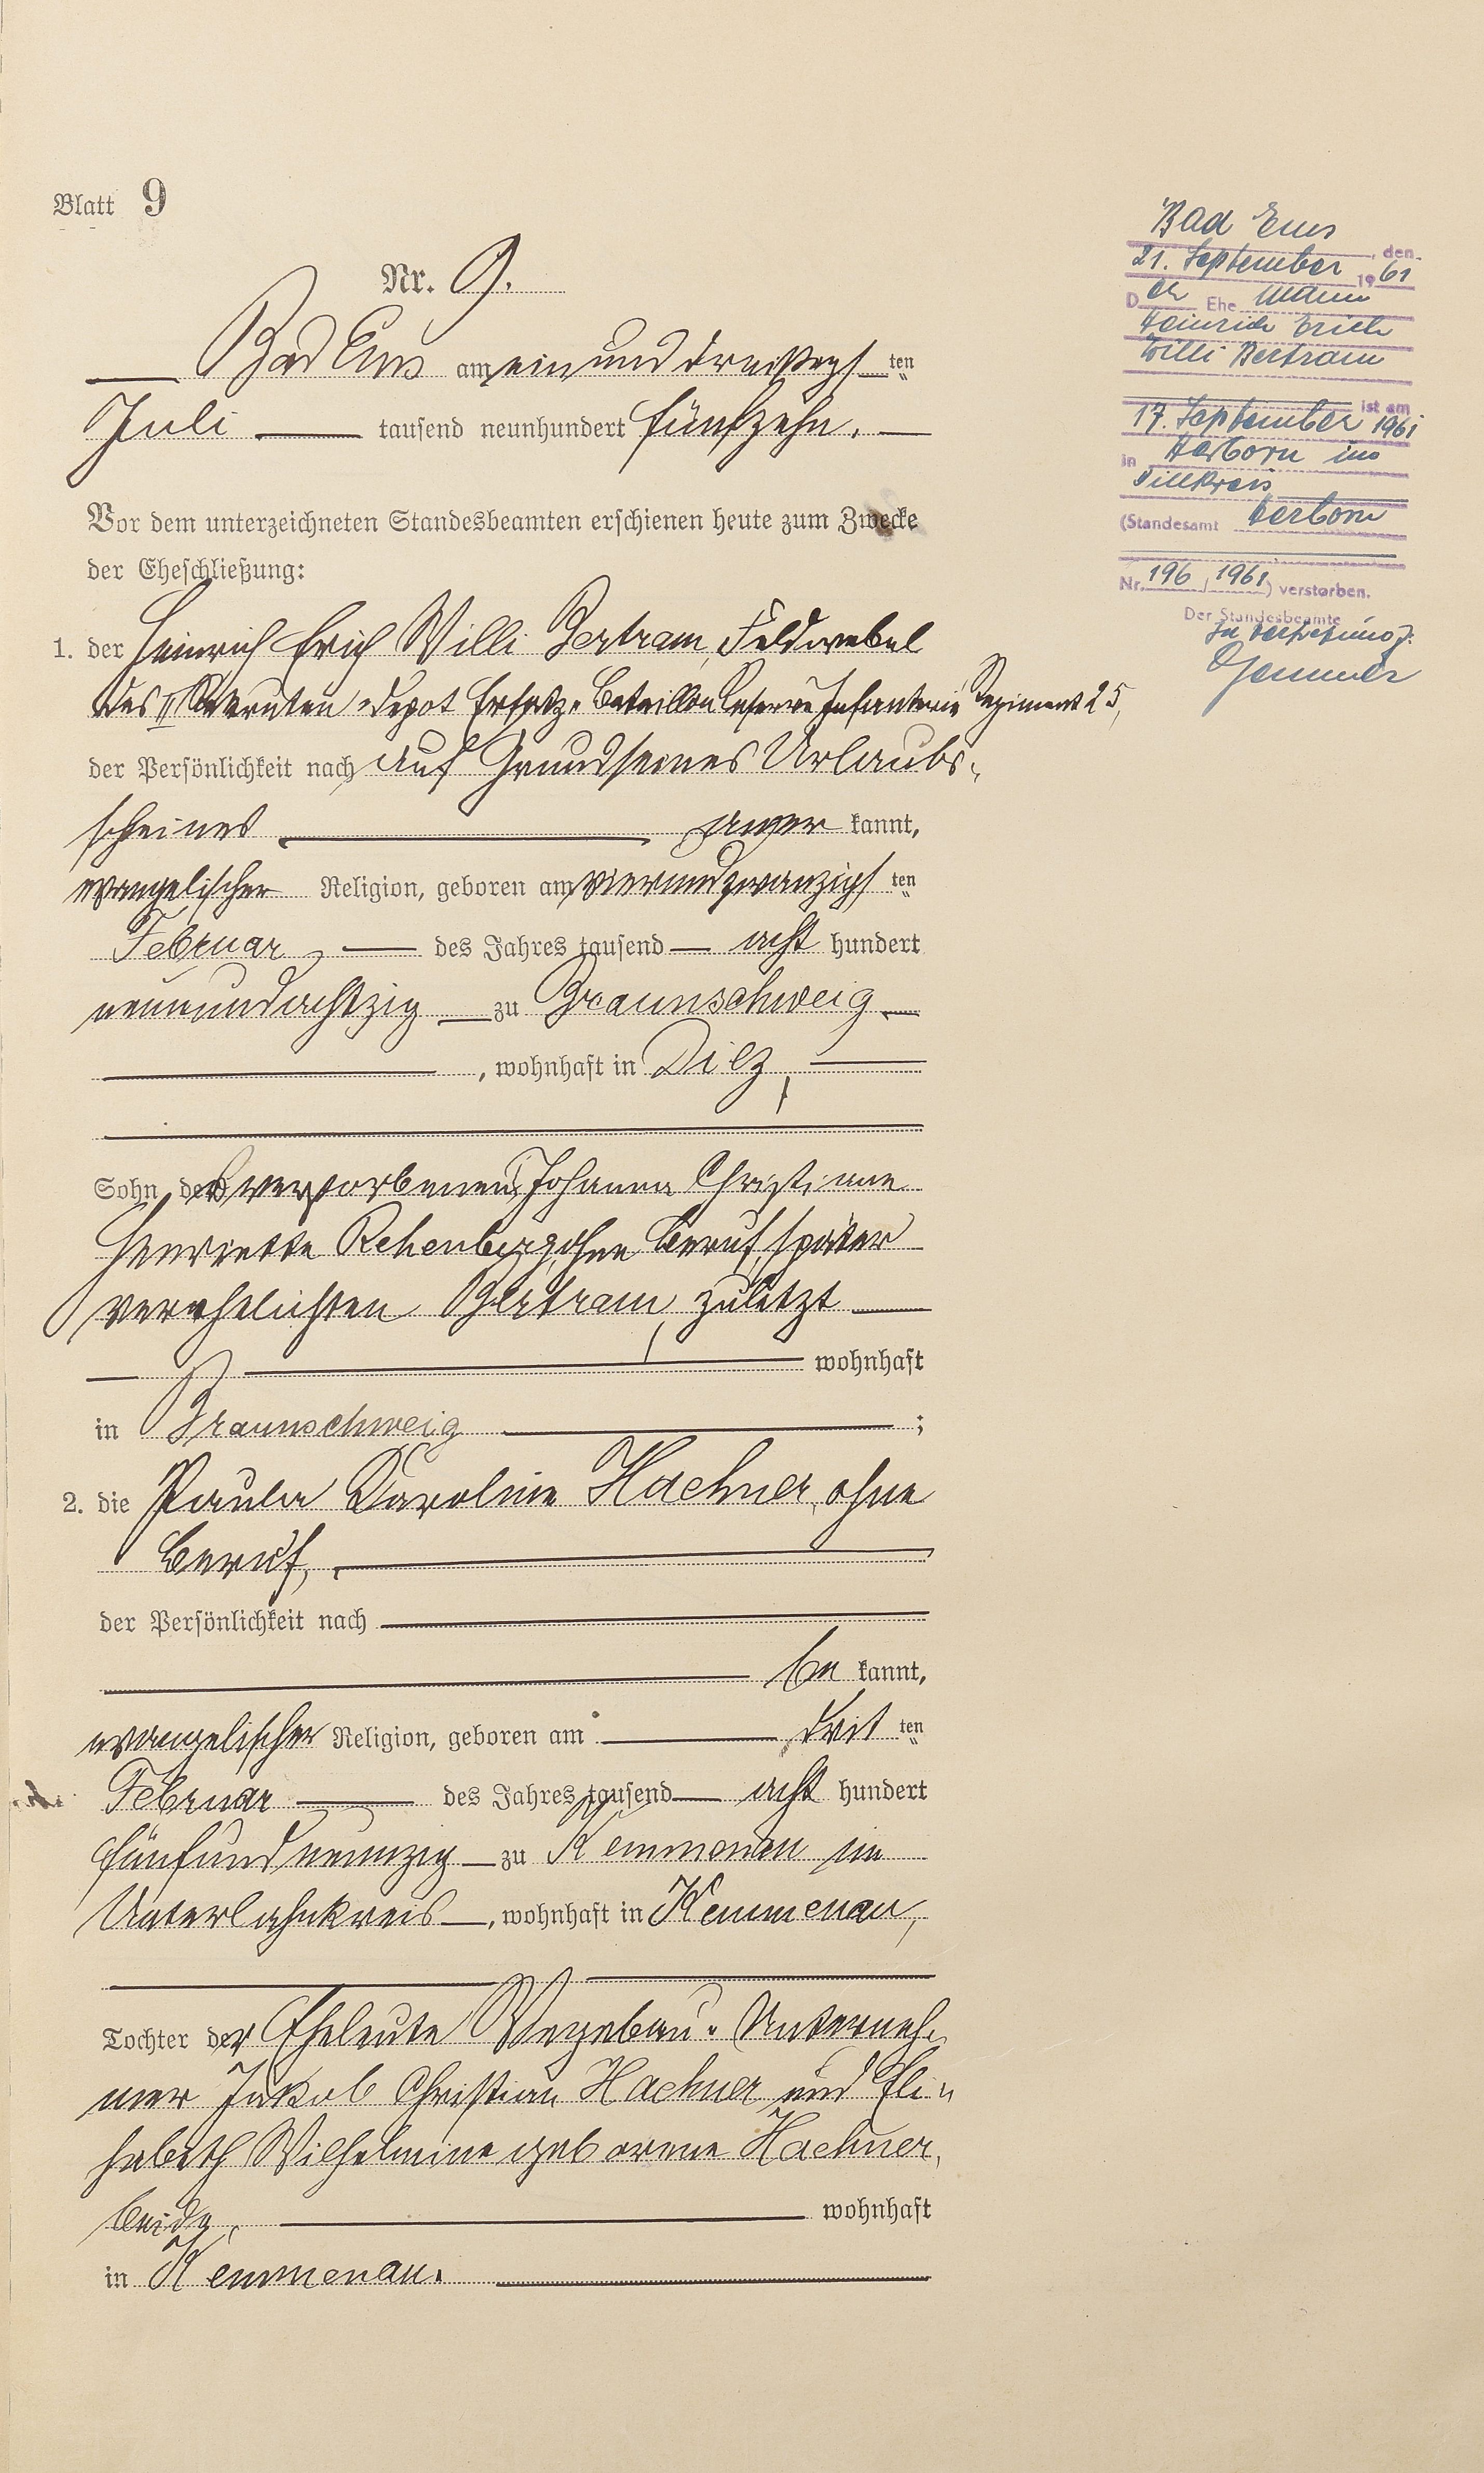 Blatt 9
Nr. 9.
Bad Ems am einunddreißigsten
Juli tausend neunhundert fünfzehn.
Vor dem unterzeichneten Standesbeamten erschienen heute zum Zwecke
der Eheschließung:
1. der Heinrich Erich Willi Bertram, Feldwebel
des II Rekruten-Depot Ersatz-Bataillon Reserve Infanterie Regiment 25,
der Persönlichkeit nach auf Grund seines Urlaubs-
scheines aner kannt,
evangelischer Religion, geboren am vierundzwanzigsten
Februar des Jahres tausend acht hundert
neunundachtzig zu Braunschweig
, wohnhaft in Diez,
Sohn der verstorbenen Johanna Christiane
Henriette Rehenberg, ohne Beruf, später
verehelichten Bertram, zuletzt
wohnhaft
in Braunschweig ;
2. die Paula Karoline Hachner, ohne
Beruf,
der Persönlichkeit nach
be kannt,
evangelischer Religion, geboren am dritten
Februar des Jahres tausend acht hundert
fünfundneunzig zu Kemmenau im
Unterlahnkreis, wohnhaft in Kemmenau,
Tochter der Eheleute Wegebau-Unterneh-
mer Jakob Christian Hachner und Eli-
sabeth Wilhelmine geborene Hachner,
beide, wohnhaft
in Kemmenau.
Bad Ems, den
21. September 1961
Der Ehe mann
Heinrich Erich
Willi Bertram
ist am
17. September 1961
in Herborn im
Dillkreis
(Standesamt Herborn
Nr. 196, 1961) verstorben.
Der Standesbeamte
In Vertretung: